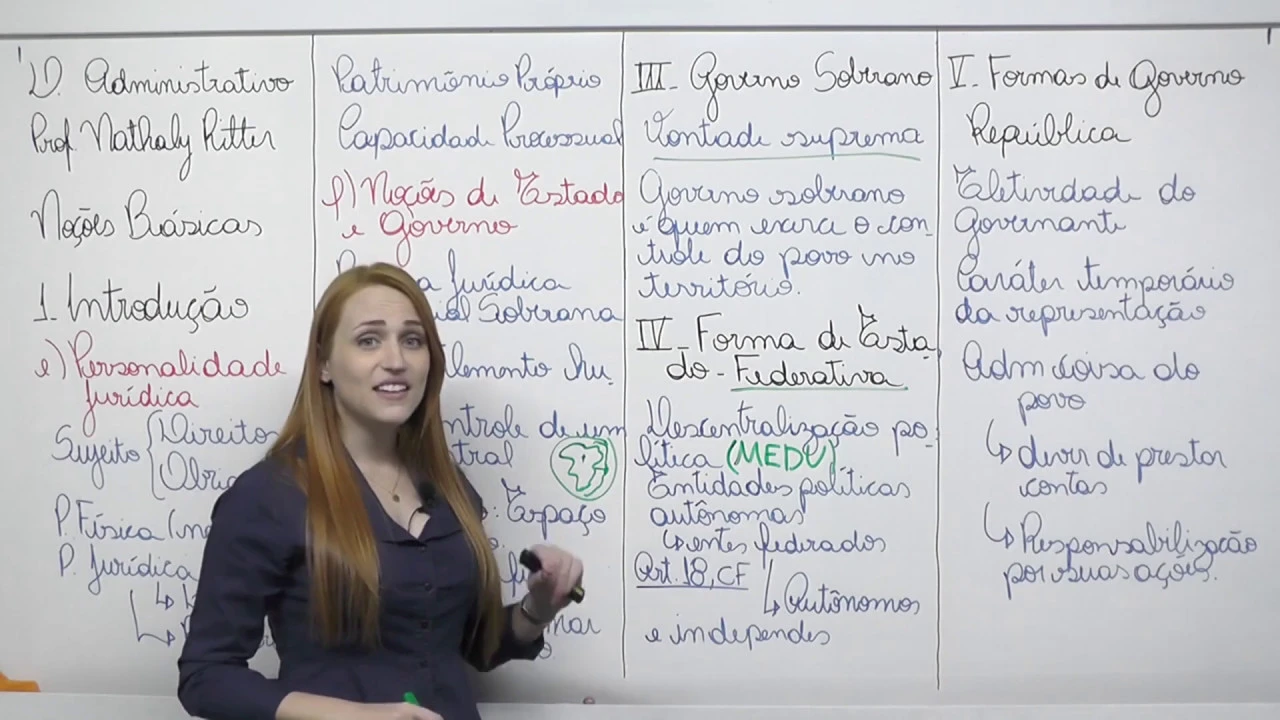 D. Administrativo
Prof. Nathaly Ritter
Noções Básicas
1. Introdução
e) Personalidade
Jurídica
Sujeito
Direitos
P. Física
P. Jurídica
Patrimônio Próprio
Capacidade Processual
f) Noções de Estado
e Governo
Jurídica
Soberana
Elemento hu-
de um
Espaço
III - Governo Soberano
Vontade suprema
Governo soberano
é quem exerce o con-
trole do povo no
território.
IV - Forma de Esta
do - Federativa
Descentralização po-
lítica (MEDU)
Entidades políticas
autônomas
↳ entes federados
Art. 18, CF
↳ Autônomos
e independes
V. Formas de Governo
República
Eletividade do
Governante
Caráter temporário
da representação
Adm coisa do
povo
↳ dever de prestar
contas
↳ Responsabilização
por suas ações.